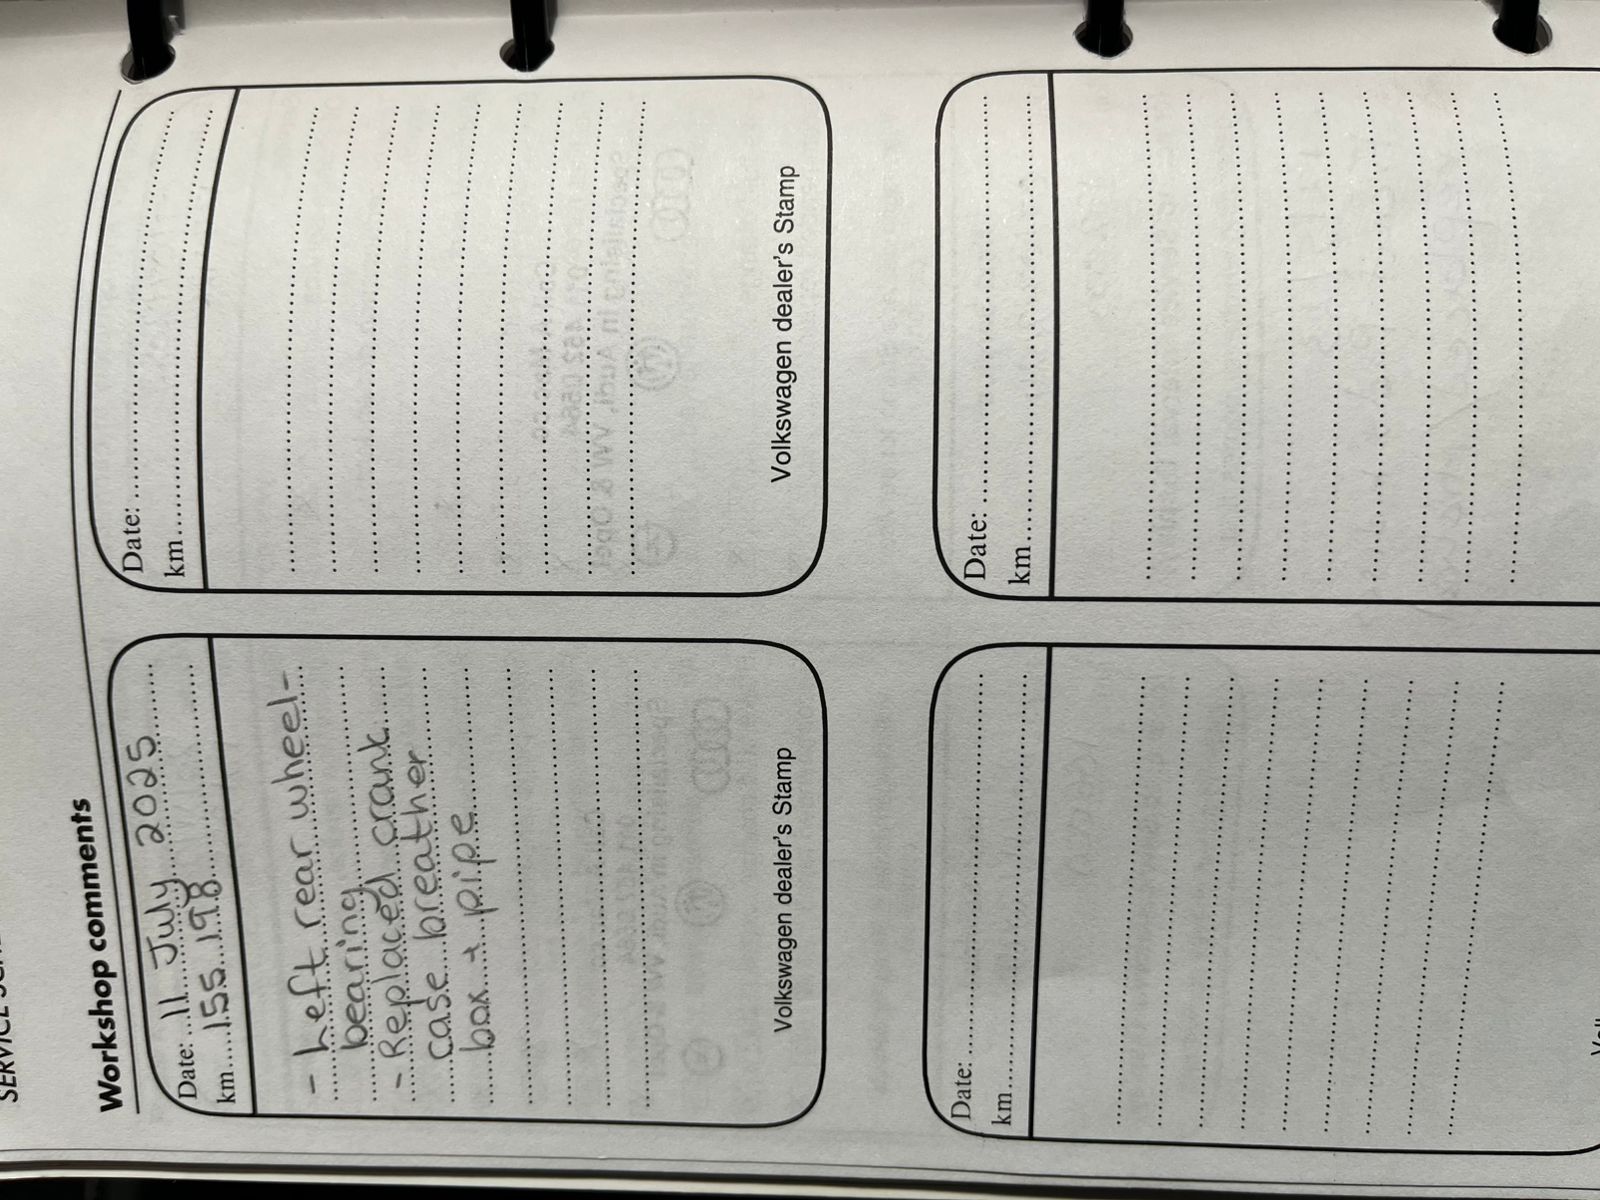 Workshop comments
Date: 11 July 2025
km 155 198
- Left rear wheel-
bearing
- Replaced crank
case breather
box + pipe
Volkswagen dealer's Stamp
Date:
km
Volkswagen dealer's Stamp
Date:
km
Date:
km